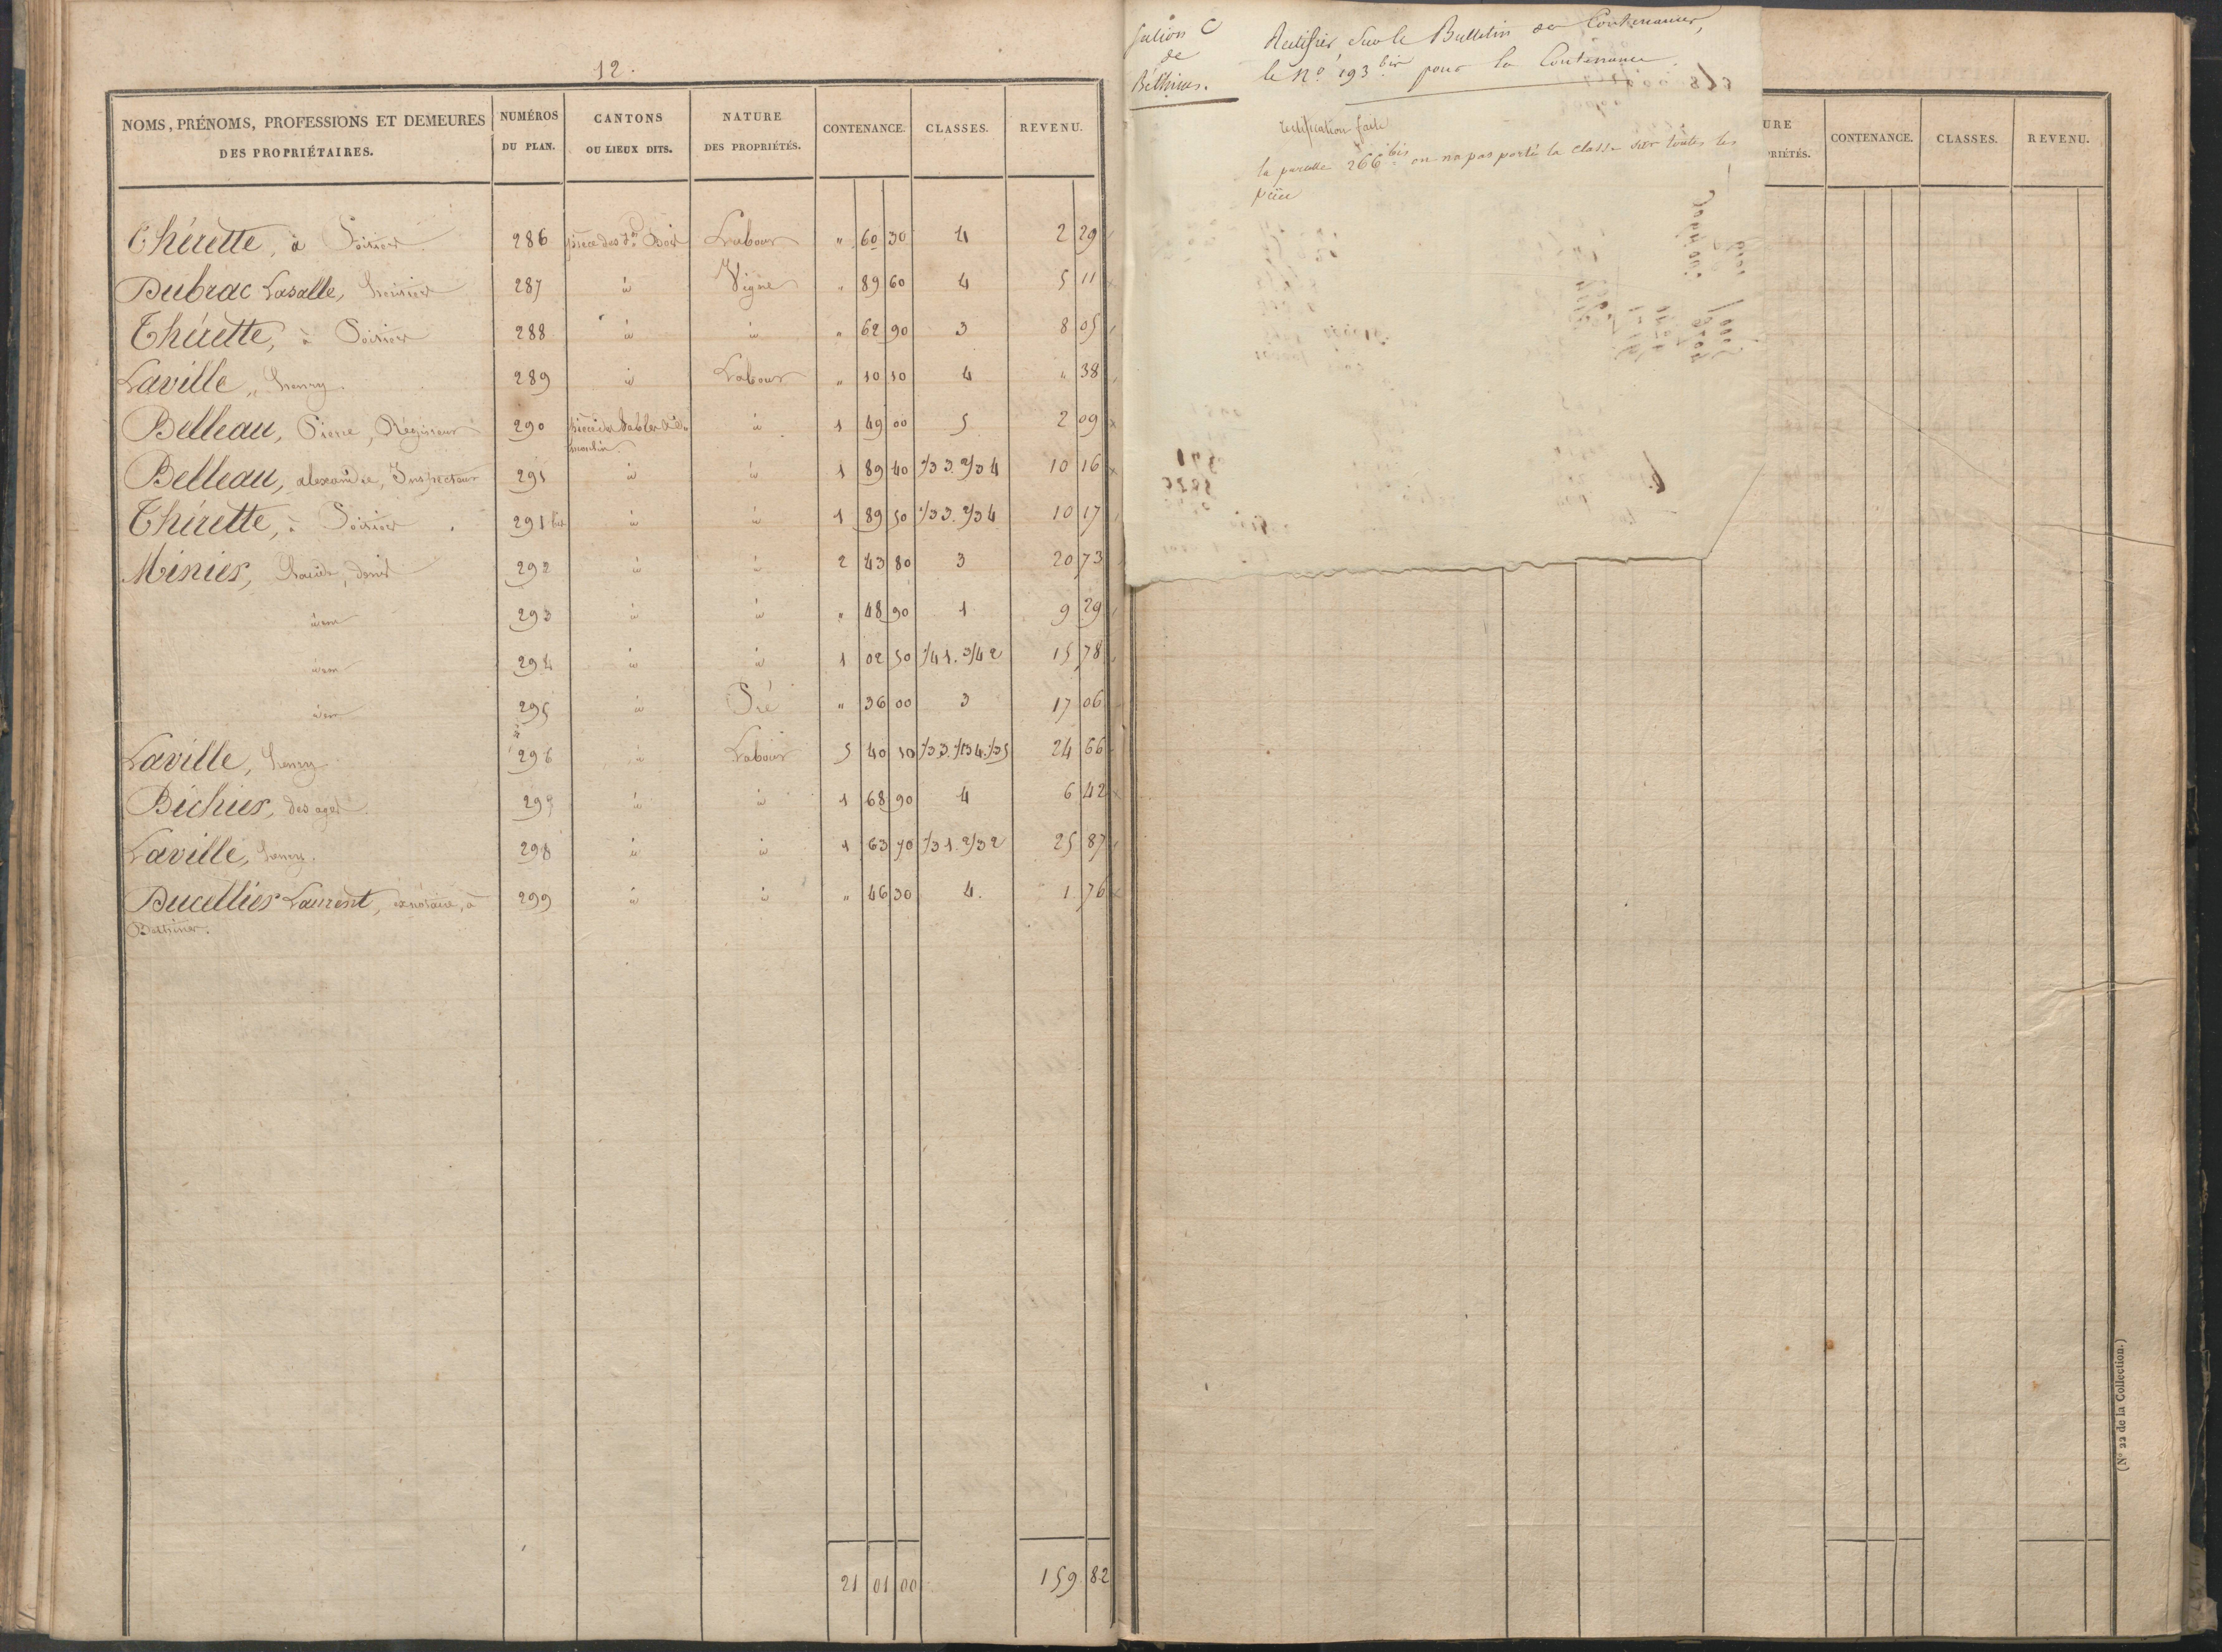 12.
NOMS, PRÉNOMS, PROFESSIONS ET DEMEURES DES PROPRIÉTAIRES. | NUMÉROS DU PLAN. | CANTONS OU LIEUX DITS. | NATURE DES PROPRIÉTÉS. | CONTENANCE. | CLASSES. | REVENU.
Thérette, à Poitiers | 286 | pièce des Bois | Labour | " 60 30 | 4 | 2 29
Dubrac Lasalle, | 287 | id | Vigne | " 89 60 | 4 | 5 11
Thérette, à Poitiers | 288 | id | id | " 62 90 | 3 | 8 05
Laville, henry | 289 | id | Labour | " 10 10 | 4 | " 38
Belleau, Pierre, Régisseur | 290 | pièce des Sables moulin | id | 1 49 00 | 5 | 2 09
Belleau, alexandre, Inspecteur | 291 | id | id | 1 89 40 | 1/3 3. 2/3 4 | 10 16
Thérette, à Poitiers | 291 bis | id | id | 1 89 50 | 1/3 3. 2/3 4 | 10 17
Minier, Louis, denis | 292 | id | id | 2 43 80 | 3 | 20 73
idem | 293 | id | id | " 48 90 | 1 | 9 29
idem | 294 | id | id | 1 02 50 | 1/4 1. 3/4 2 | 15 78
idem | 295 | id | Pré | " 36 00 | 3 | 17 06
Laville, henry | 296 | id | Labour | 5 40 10 | 1/3 3. 1/3 4. 1/3 5 | 24 66
Bichier, des ages | 297 | id | id | 1 68 90 | 4 | 6 42
Laville, henry. | 298 | id | id | 1 63 70 | 1/3 1. 2/3 2 | 25 87
Ducellier Laurent, exnotaire, à | 299 | id | id | " 46 30 | 4. | 1 76
Béthines.
21 01 00 | 159 82
Section C
de
Béthines.
Rectifier, sur le Bulletin de Contenance,
le No. 193 bis pour la Contenance.
rectification faite
la parcelle 266 bis on na pas porté la classe sur toutes les
pièces
URE
PRIÉTÉS. | CONTENANCE. | CLASSES. | REVENU.
(No 22 de la Collection.)